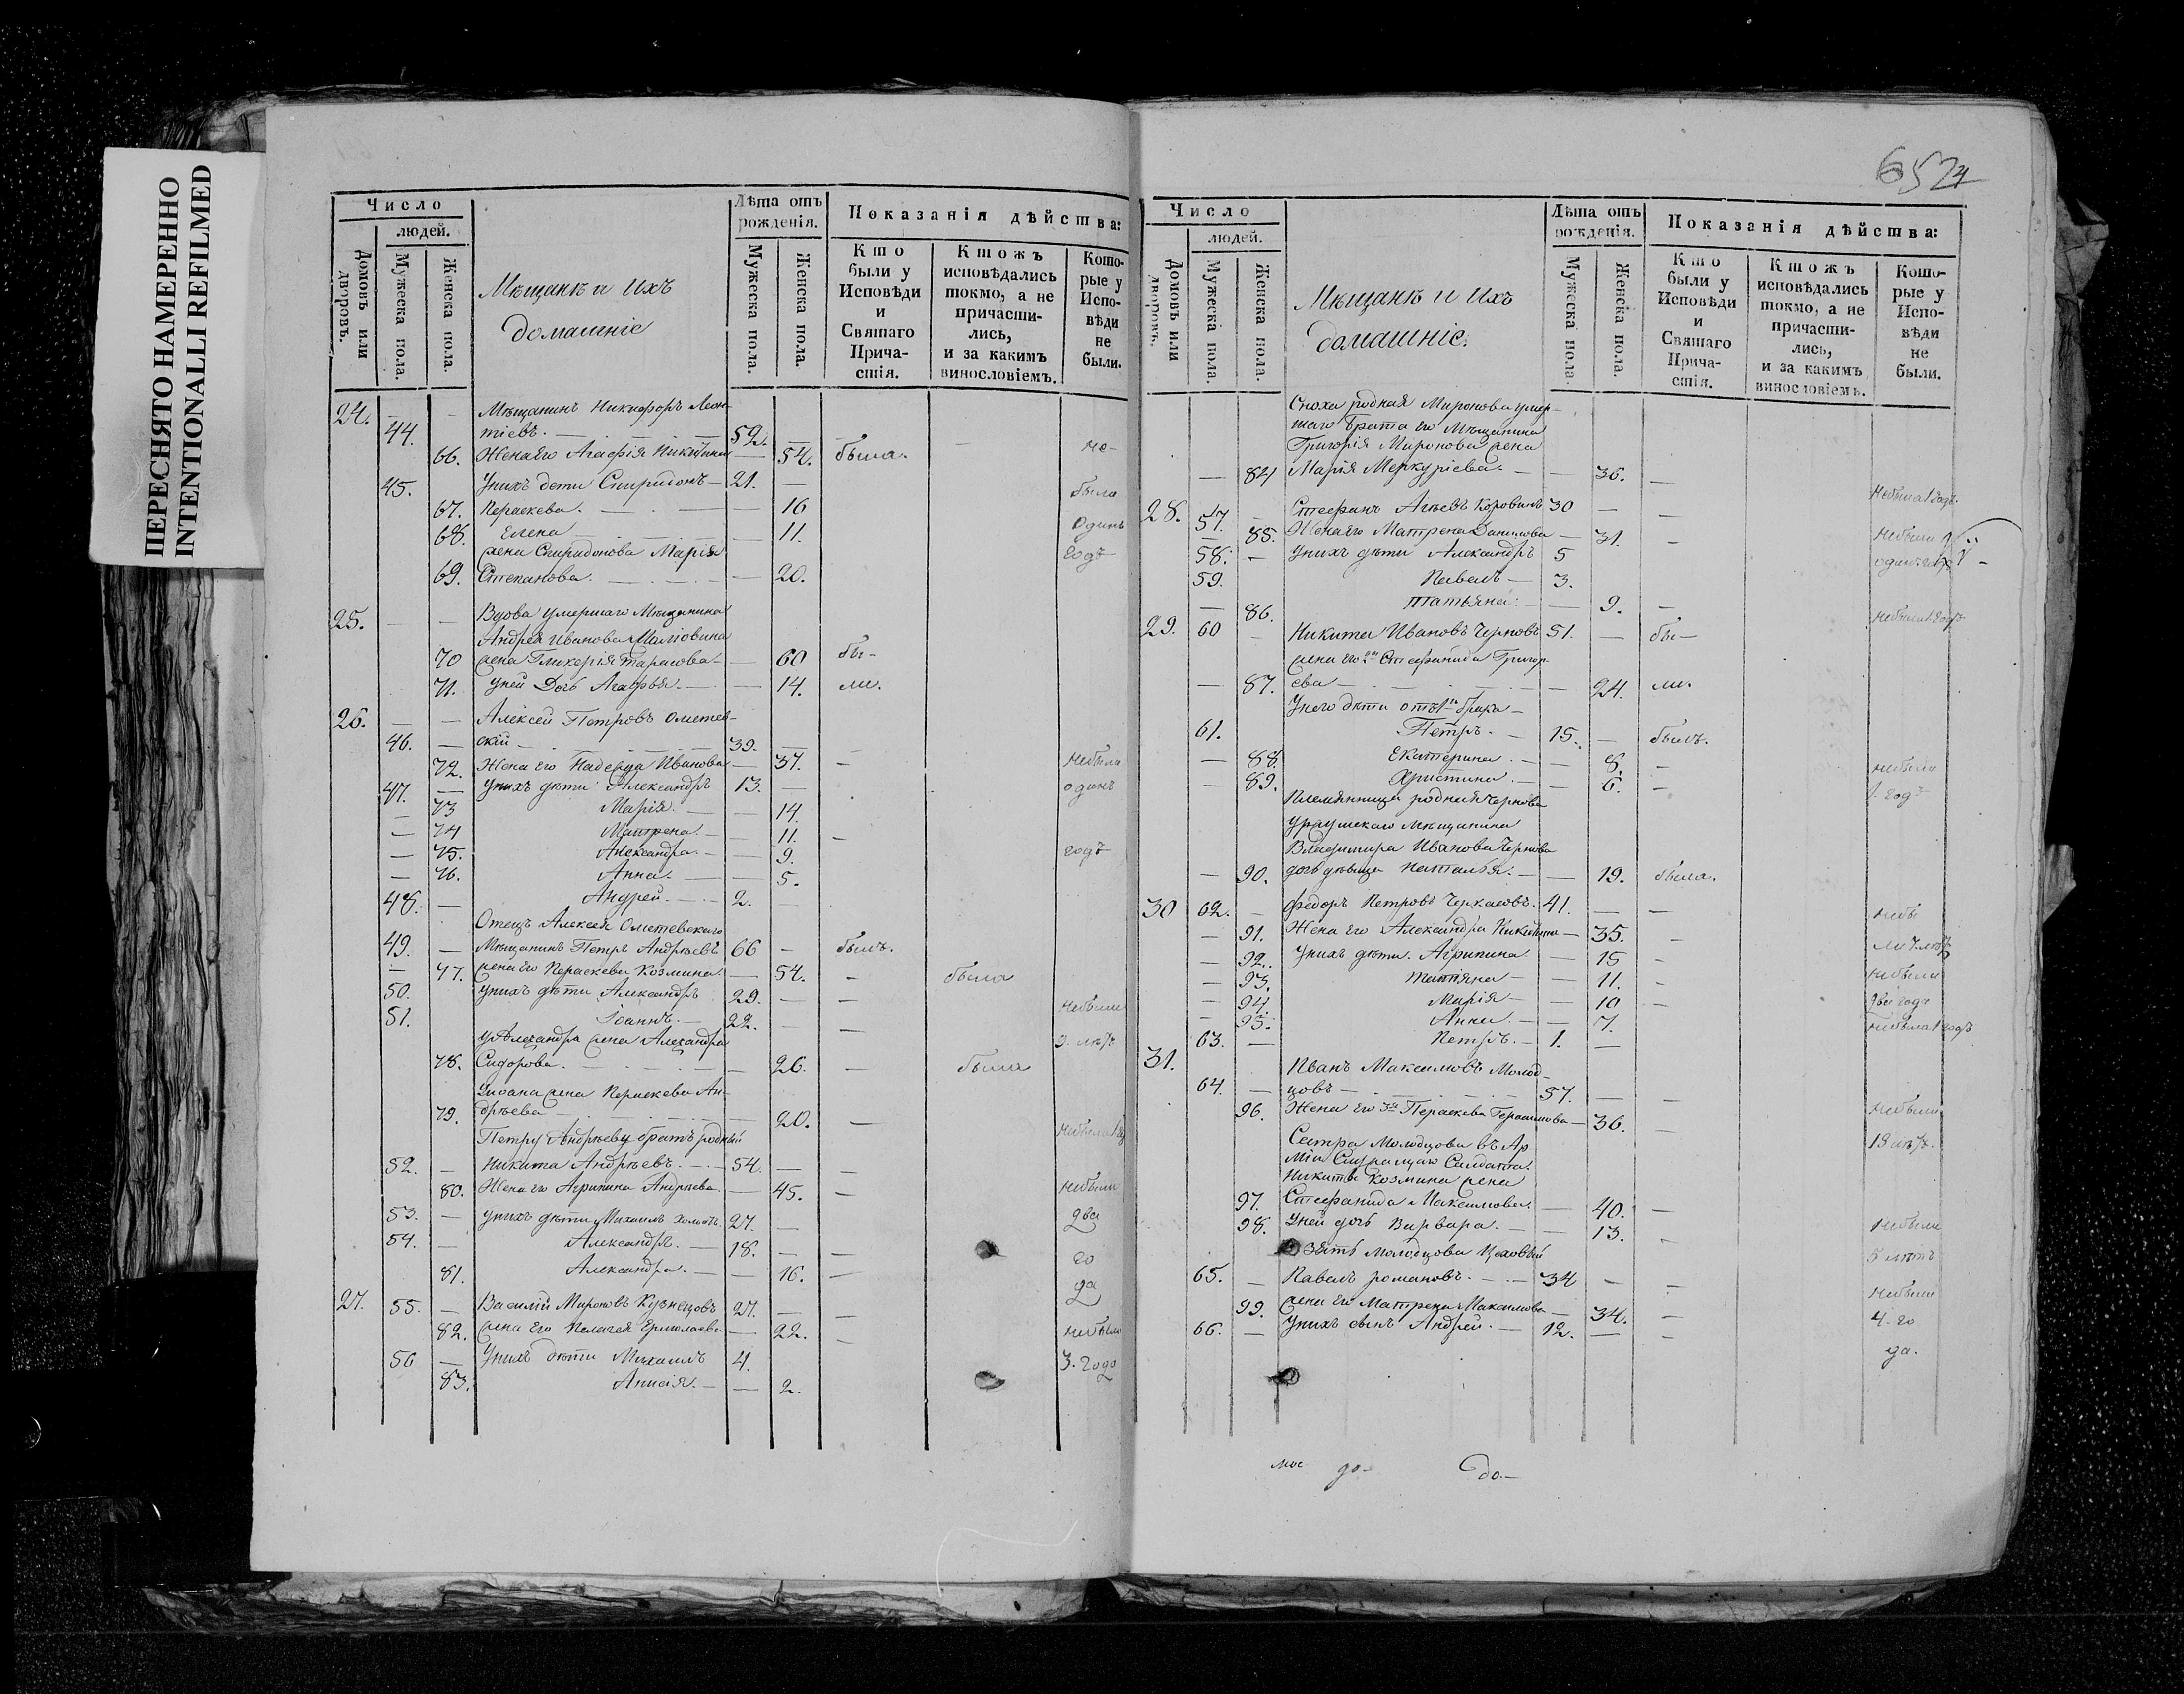 ПЕРЕСНЯТО НАМЕРЕННО
INTENTIONALLI REFILMED
Число
людей.
Домовъ или дворовъ.
Мужеска пола.
Женска пола.
Мѣщанѣ и ихъ
домашніе
Лѣта отъ рожденія.
Мужеска пола.
Женска пола.
Показанія дѣйства:
Кто были у Исповѣди и Святаго Причастія.
Ктожъ исповѣдались токмо, а не причастились, и за какимъ винословіемъ.
Которые у Исповѣди не были.
24. Мѣщанинъ Никифоръ Леон-
44. тіевъ. 52.
66. Жена его Агафія Никитина 54. была. не-
45. Унихъ дѣти Спиридонъ 21. была
67. Параскева. 16
68. Елена 11. одинъ
жена Спиридонова Марія годъ
69. Степанова. 20.
25. Вдова умершаго Мѣщанина
Андрея Иванова
70 жена Гликерія Тарасова 60 бы-
71. уней дочь Агафья. 14. ли.
26. Алексей Петровъ Ометев-
46. скій 39.
72. Жена его Надежда Иванова 37. небыли
47. Унихъ дѣти Александръ 13. одинъ
73 Марія. 14.
74 Матрена. 11.
75. Александра. 9. годъ
76. Анна. 5.
48. Андрей. 2.
Отецъ Алексея Ометевскаго
49. Мѣщанинъ Петръ Андрѣевъ 66 былъ.
77. жена его Параскева Козмина. 54. была
50. Унихъ дѣти Александръ 29. небыли
51. Іоаннъ. 22.
У Александра жена Александра 3. лѣтъ
78. Сидорова. 26. была
Жена Параскева Ан-
79. дрѣева 20.
Петру Андрѣеву братъ родный
52. Никита Андрѣевъ. 54.
80. Жена его Агрипина Андрѣева. 45. небыли
53. Унихъ дѣти Михаилъ холостъ 27. два
54. Александръ. 18. го
81. Александра. 16. да
27. 55. Василій Мироновъ Кузнецовъ 27.
82. жена его Пелагея Ермолаева 22. небыли
56 Унихъ дѣти Михаилъ 4. 3. года
83. Анисія. 2.
6524
Число
людей.
Домовъ или дворовъ.
Мужеска пола.
Женска пола.
Мѣщанѣ и ихъ
домашніе.
Лѣта отъ рожденія.
Мужеска пола.
Женска пола.
Показанія дѣйства:
Кто были у Исповѣди и Святаго Причастія.
Ктожъ исповѣдались токмо, а не причастились, и за какимъ винословіемъ.
Которые у Исповѣди не были.
Сноха родная Миронова умер-
шаго брата его Мѣщанина
Григорія Миронова жена
84 Марія Меркуріева. 36. небыла 1 годъ.
28. 57. Стефанъ Агѣевъ Коровинъ 30
85. Жена его Матрена Данилова 31. небыли
58. Унихъ дѣти Александръ 5 одинъ годъ
59. Павелъ 3.
86. Татьяна. 9. небыла 1 годъ
29. 60 Никита Ивановъ Черновъ 51. бы-
жена его 2я Стефанида Григор-
87. ева 24. ли.
Унего дѣти отъ 1го брака
61. Петръ. 15. былъ.
88. Екатерина. 8. небыли
89. Христина. 6. 1. годъ
Племянница родная Чернова
мѣщанина
Владимира Иванова Чернова
90. дочь дѣвица Наталья. 19. была.
30 62. Федоръ Петровъ Черкасовъ. 41. небы
91. Жена его Александра Никитина 35. ли 7. лѣтъ
92. Унихъ дѣти. Агрипина. 15
93. Татіяна 11. небыли
94. Марія 10 два года
95. Анна. 7. небыла 1 годъ
63. Петръ. 1.
31. Иванъ Максимовъ Молод-
64. цовъ 57.
96. Жена его 3я Параскева Герасимова 36. небыли
Сестра Молодцова въ Ар- 13 лѣтъ.
міи Служащаго Солдата
Никиты Козмина жена
97. Стефанида Максимова. 40.
98. Уней дочь Варвара. 13. небыли
Зять Молодцова Цеховый 5 лѣтъ
65. Павелъ Романовъ. 34
99. жена его Матрена Максимова 34. небыли
66. Унихъ сынъ Андрей. 12. 4. го
да.
до